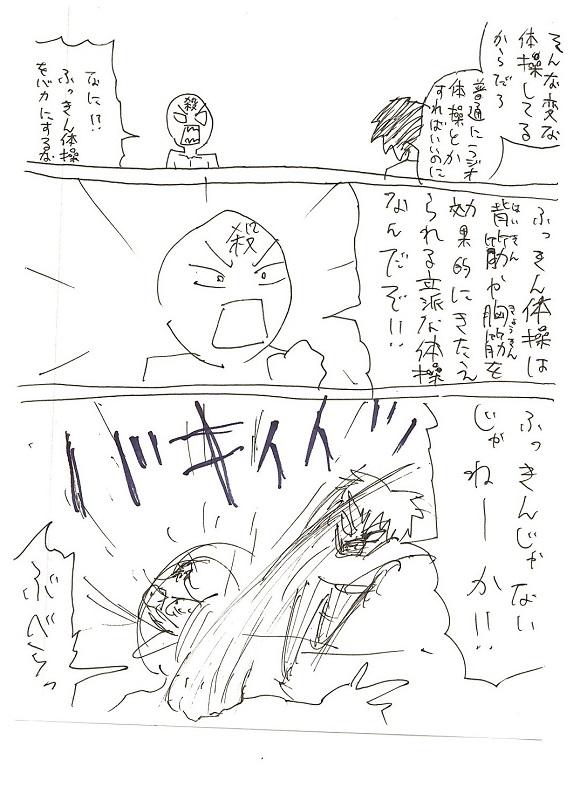 そんな変な
体操してる
からだろ
普通にラジオ
体操とか
すればいいのに
殺
なに!?
ふっきん体操
をバカにするな
ふっきん体操は
背筋や胸筋を
はいきん
きょうきん
効果的にきたえ
られる立派な体操
なんだぞ!!
殺
ふっきんじゃない
じゃねーか!!
バキィィッ
ぶべらっ